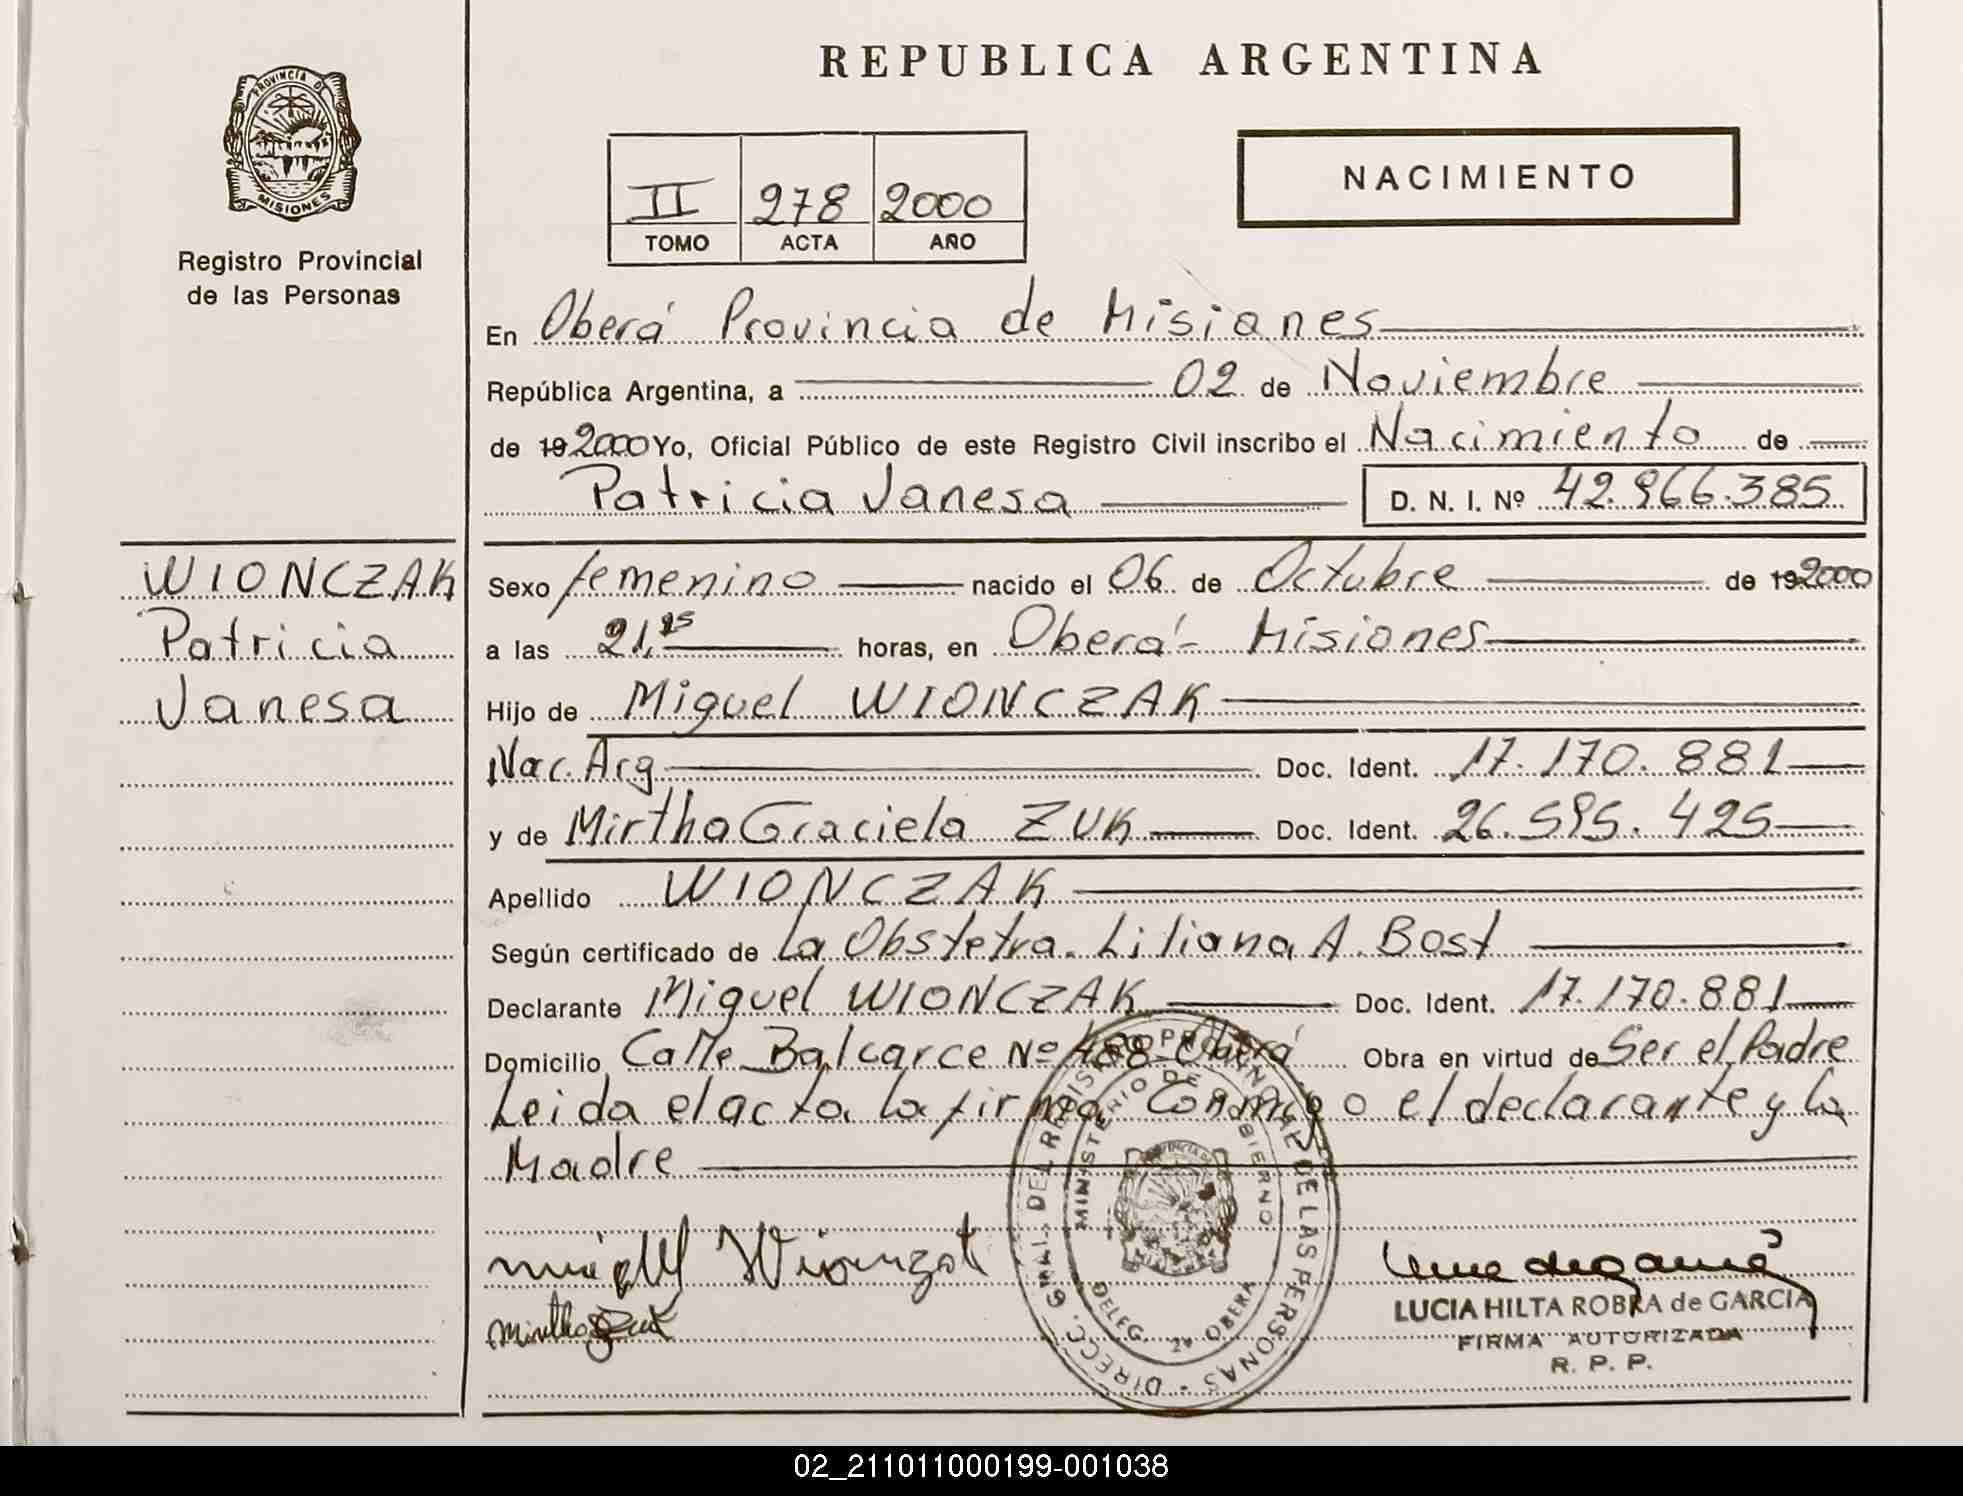 REPUBLICA ARGENTINA
PROVINCIA DE
MISIONES
Registro Provincial
de las Personas
II 278 2000
TOMO ACTA AÑO
NACIMIENTO
En Oberá Provincia de Misiones
República Argentina, a 02 de Noviembre
de 19 2000 Yo, Oficial Público de este Registro Civil inscribo el Nacimiento de
Patricia Vanesa D. N. I. Nº 42.966.385
WIONCZAK
Patricia
Vanesa
Sexo femenino nacido el 06 de Octubre de 19 2000
a las 21,25 horas, en Oberá - Misiones
Hijo de Miguel WIONCZAK
Nac. Arg Doc. Ident. 17.170.881
y de Mirtha Graciela ZUK Doc. Ident. 26.595.425
Apellido WIONCZAK
Según certificado de La Obstetra. Liliana A. Bost
Declarante Miguel WIONCZAK Doc. Ident. 17.170.881
Domicilio Calle Balcarce Nº 488 - Oberá Obra en virtud de Ser el Padre
Leida el acta la firma Conmigo el declarante y la
Madre
DIRECC. GRAL. DEL REGISTRO PROVINCIAL DE LAS PERSONAS -
MINISTERIO DE GOBIERNO
DELEG. 2ª OBERA
LUCIA HILTA ROBRA de GARCIA
FIRMA AUTORIZADA
R. P. P.
02_211011000199-001038